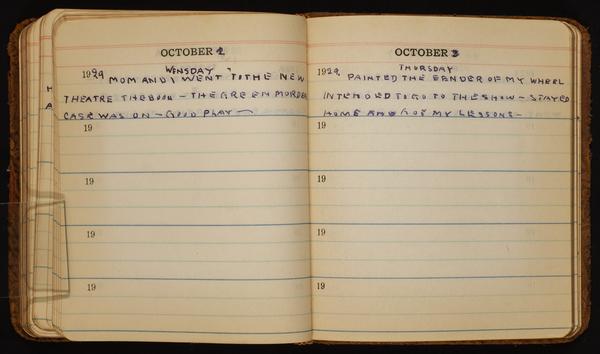 OCTOBER 2
WINSDAY
1929 MOM AND I WENT TO THE NEW
THEATRE THE BOOK - THE GREEN MORDER
CASE WAS ON - GOOD PLAY -
19
19
19
19
OCTOBER 3
THURSDAY
1929 PAINTED THE FENDER OF MY WHEEL
INTENDED TO GO TO THE SHOW - STAYED
HOME AND GOT MY LESSONS -
19
19
19
19